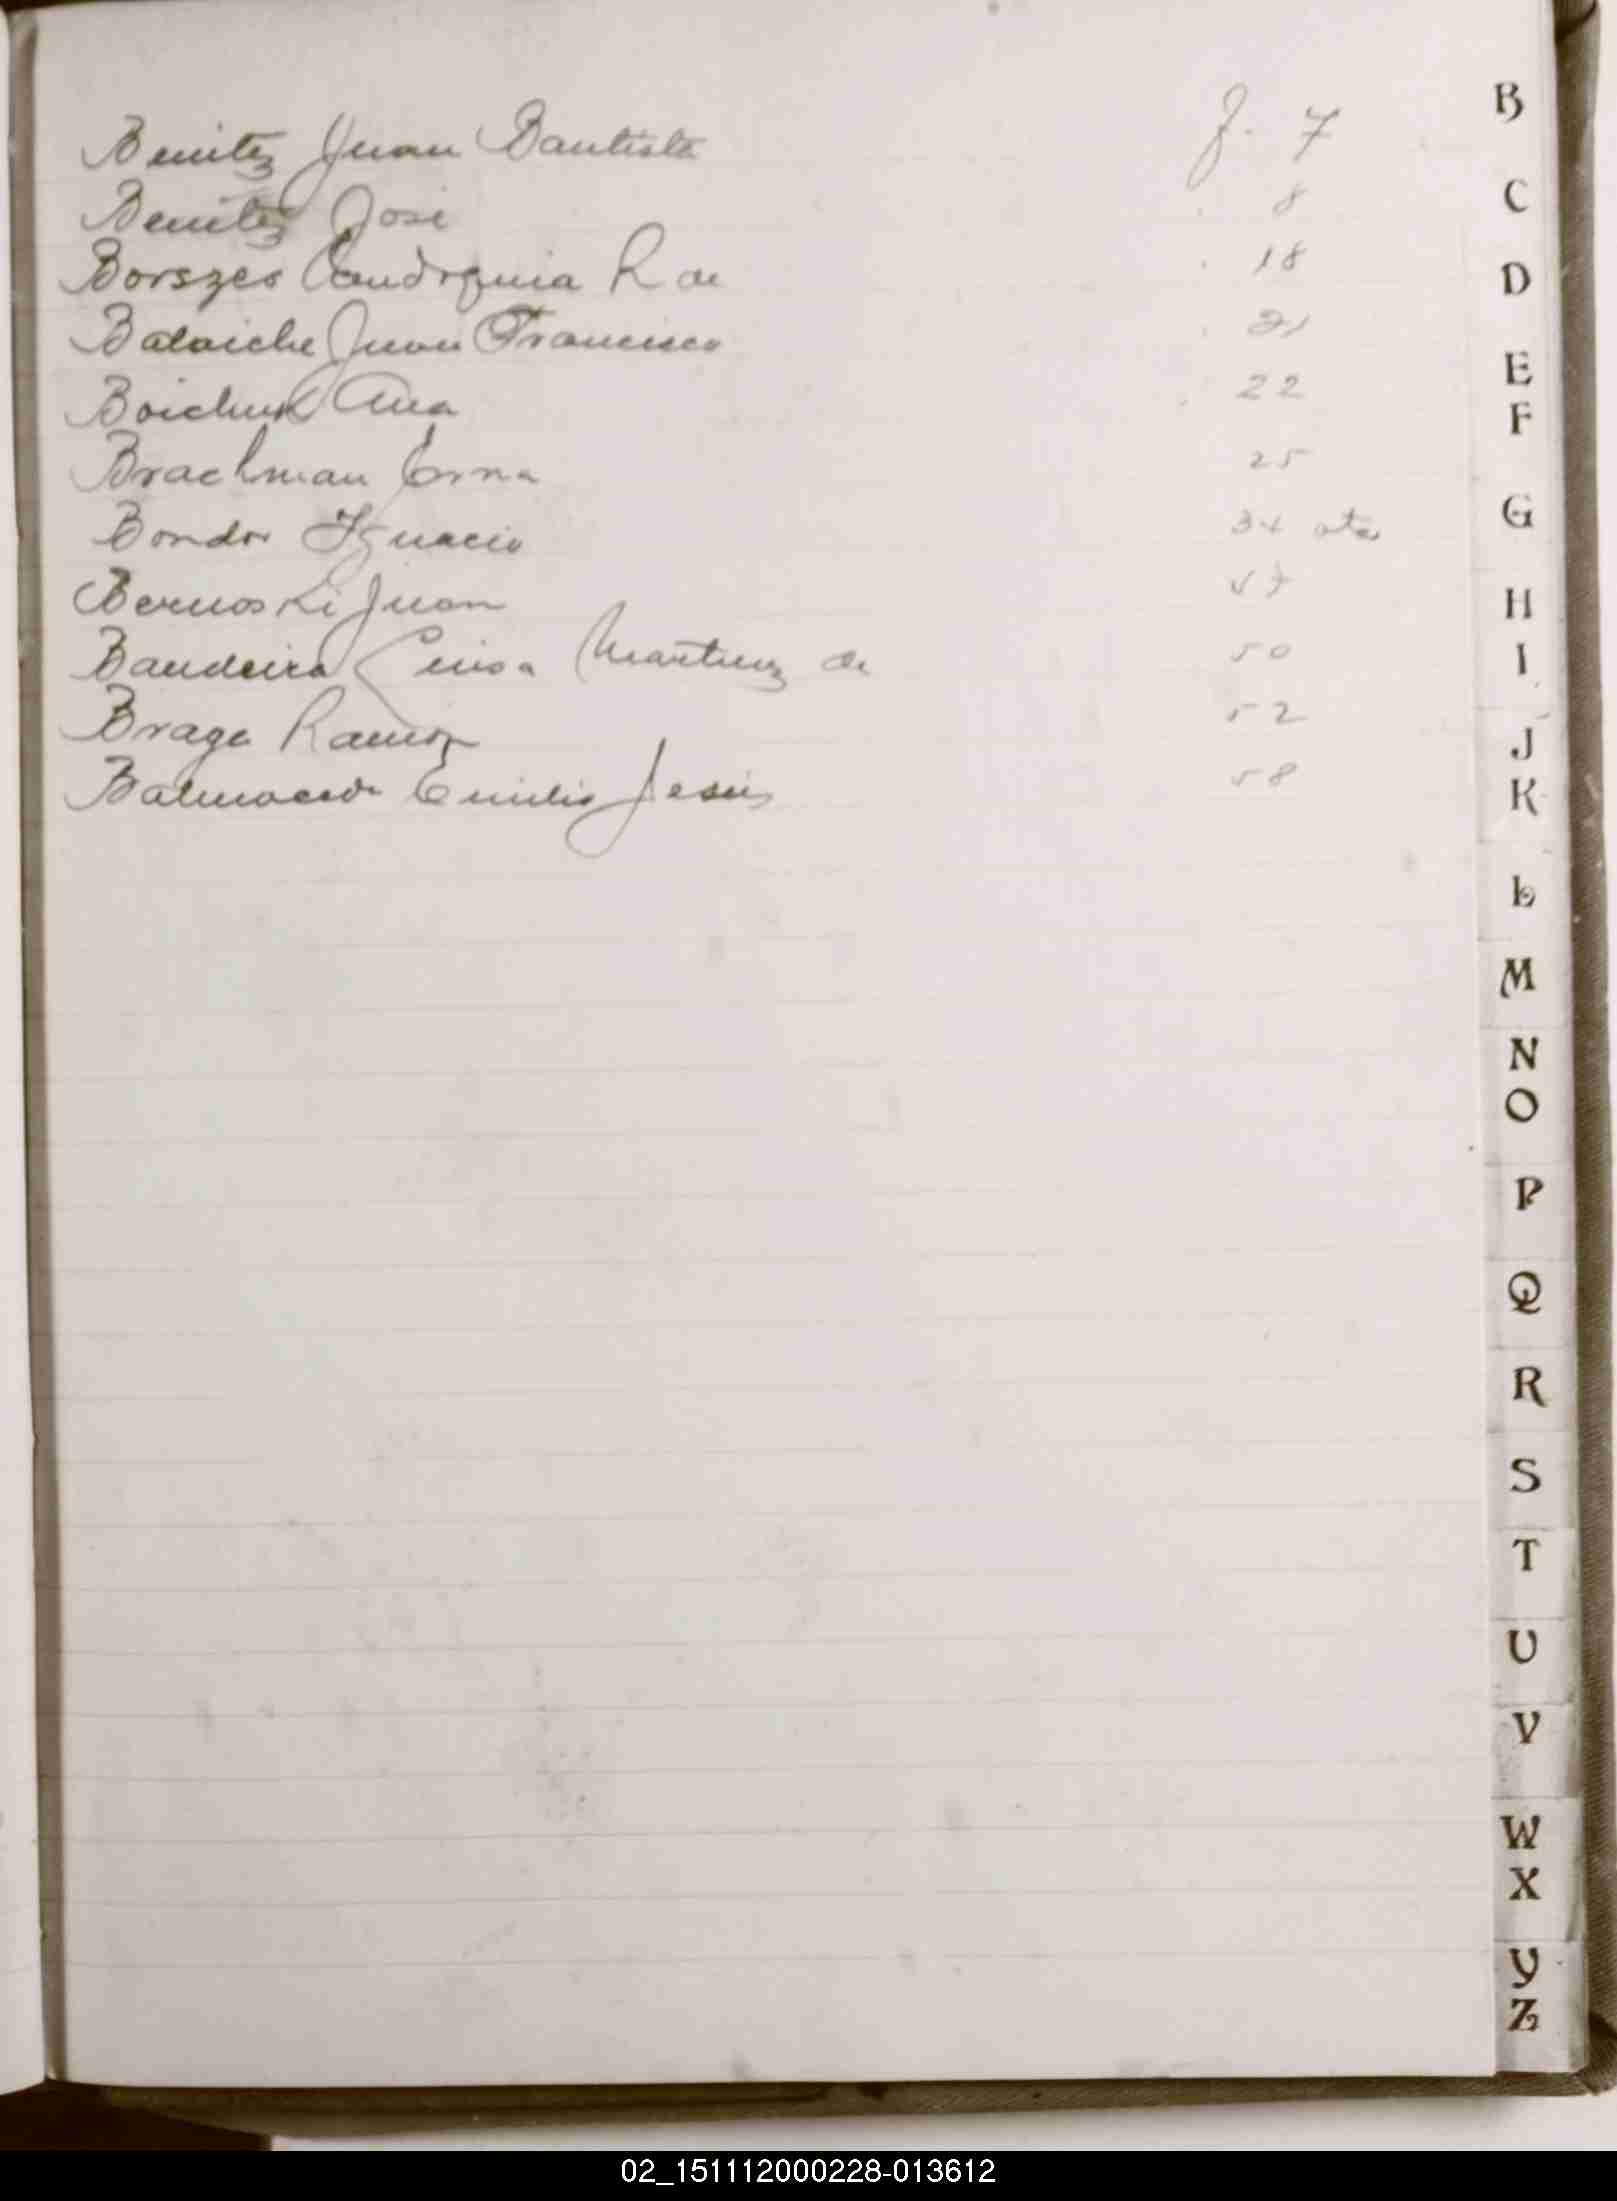 Benitez Juan Bautista f. 7
Benitez José 8
Borszes R de 18
Juan Francisco 21
Boichuk Ana 22
Brachman Erna 25
Bondar Ignacio 34 vta
Bernoski Juan 47
Bandeira Luisa Martinez de 50
Braga Ramón 52
Balmaceda Emilio Jesús 58
B
C
D
E
F
G
H
I
J
K
L
M
N
O
P
Q
R
S
T
U
V
W
X
Y
Z
02_151112000228-013612